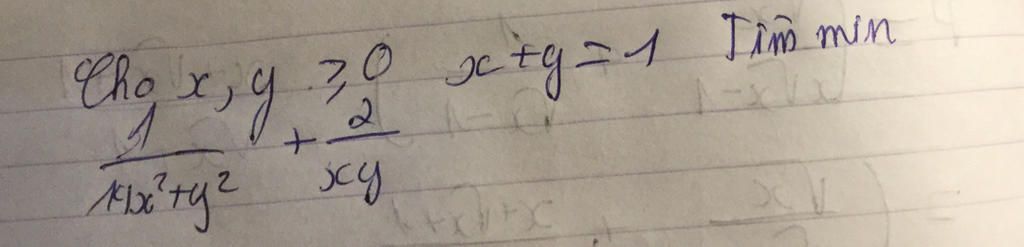 Cho x, y ≥ 0 x+y=1 Tìm min
1/(14x²+y²) + 2/xy